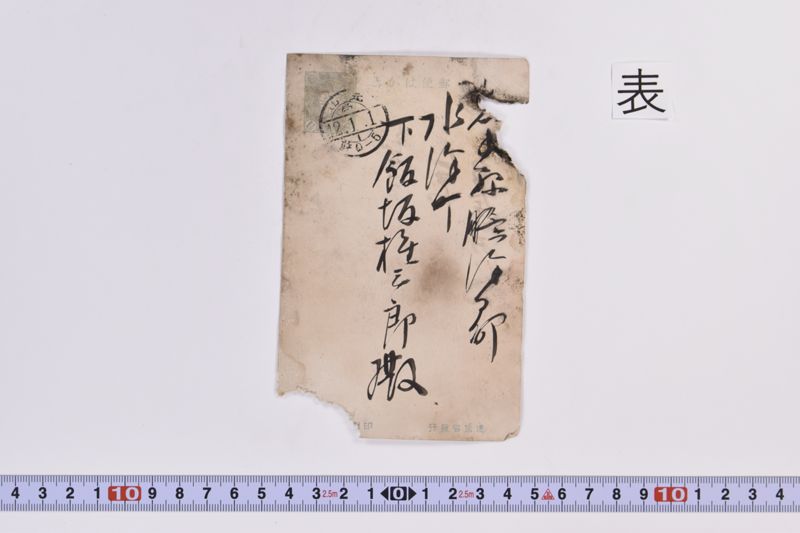 表
郵便はかき
胆沢郡
水沢町
下飯坂権三郎殿
12.1.1
逓信省発行
印
4 3 2 1 10 9 8 7 6 5 4 3 2.5m 2 1 0 1 2 2.5m 3 4 5 6 7 8 9 10 1 2 3 4